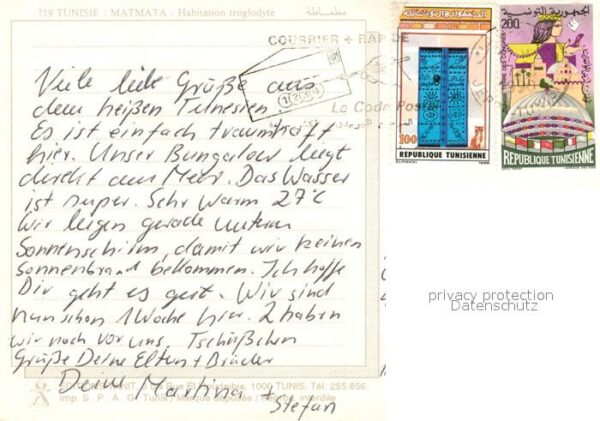 719 TUNISIE : MATMATA - Habitation troglodyte
مطماطة
COURRIER + RAPIDE
1234
Le Code Postal
الجمهورية التونسية
100
REPUBLIQUE TUNISIENNE
الجمهورية التونسية
200
REPUBLIQUE TUNISIENNE
Viele liebe Grüße aus
dem heißen Tunesien.
Es ist einfach traumhaft
hier. Unser Bungalow liegt
direkt am Meer. Das Wasser
ist super. Sehr warm 27°C
Wir liegen gerade unterm
Sonnenschirm, damit wir keinen
Sonnenbrand bekommen. Ich hoffe
Dir geht es gut. Wir sind
nun schon 1 Woche hier. 2 haben
wir noch vor uns. Tschüßchen
Grüße Deine Eltern + Brüder
Deine Martina +
Stefan
1000 TUNIS. Tél. 255.856
Imp. S. P. A. G. Tunis / Marque déposée / Repro. interdite
privacy protection
Datenschutz